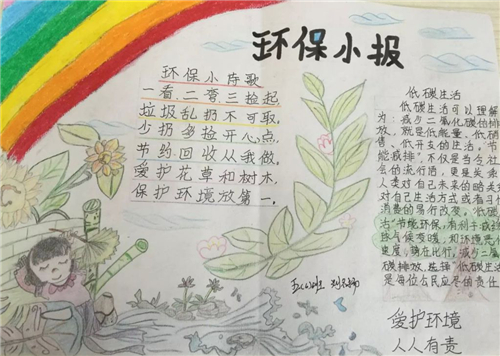 环保小报
环保小诗歌
一看二弯三捡起
垃圾乱扔不可取
少扔多捡开心点
节约回收从我做
爱护花草和树木
保护环境放第一.
低碳生活
低碳生活可以理解
为:减少二氧化碳的排
放,就是低能量、低消
耗、低开支的生活。“节
能减排”,不仅是当今社
会的流行语,更是关系
人类对自己未来的
对自己生活方式或者习
消费的易行改变,低碳
活“节能环保,有利于减
球气候变暖,和环境恶
速度,势在必行,减少二氧
碳排放,选择“低碳生活
是每位公民应尽的责任
爱护环境
人人有责